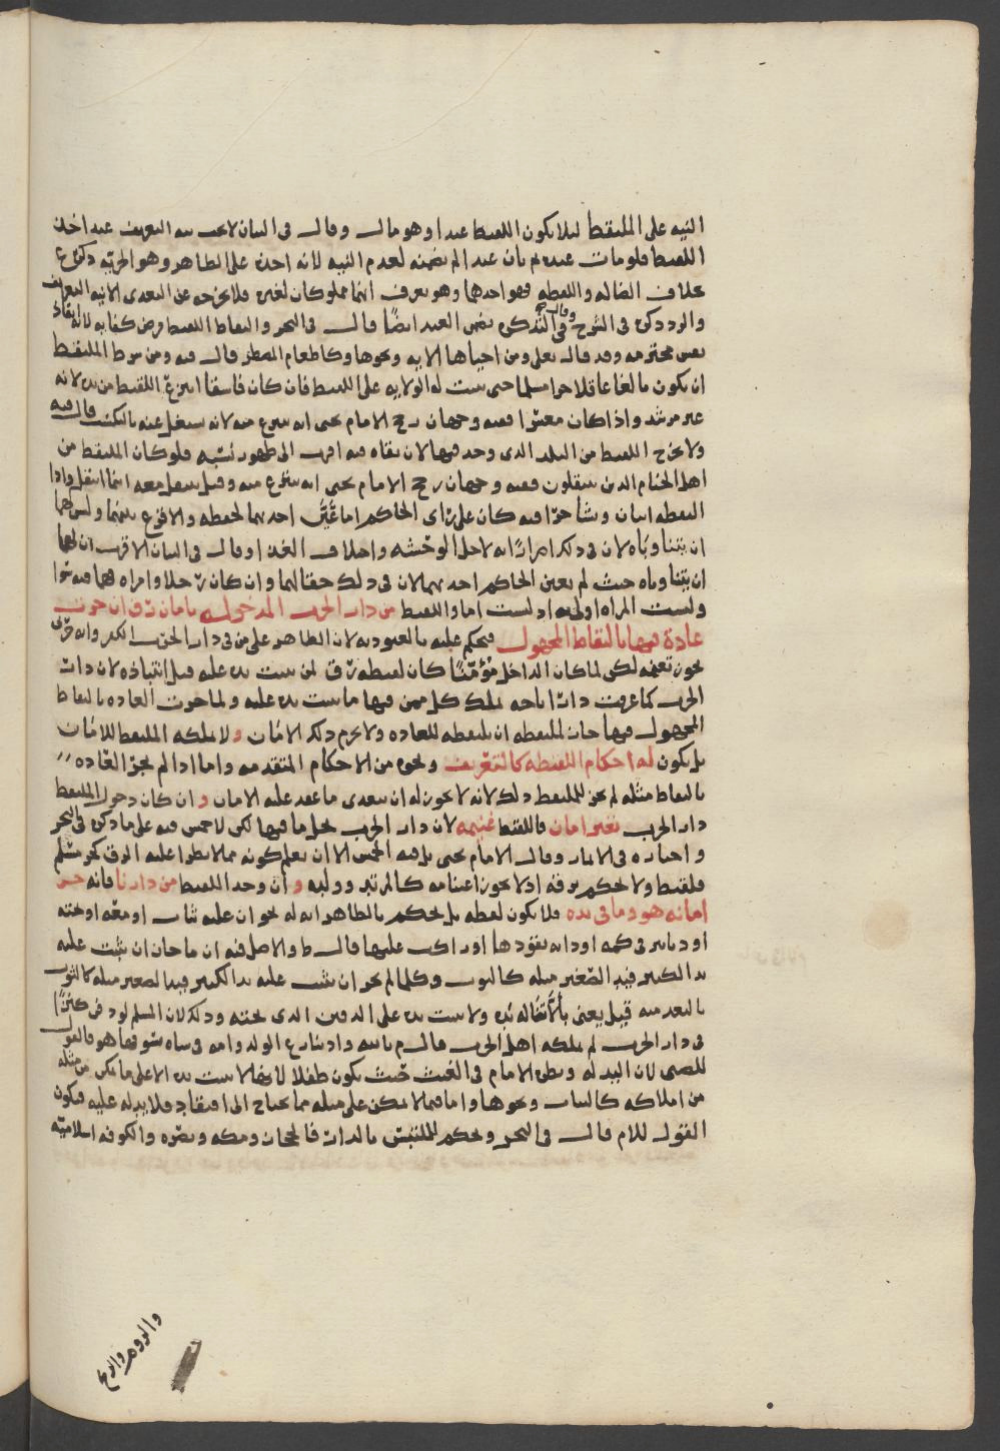 البينه على الملتقط ليلا يكون اللقيط عبدا وهو مال وقال في البيان لا يجب التعريف عند اخذ
اللقيط فلو مات عنده ثم بان عبدا لم يضمنه لعدم البينه لانه اخذه على الظاهر وهو الحريه ذكره ع
بخلاف الضاله واللقطه فهو احدهما وهو يعرف انها مملوكان لغيره فلا يخرجه عن التعدي الا نيه التعريف
والرد ذكره في الشرح وقال في التذكره يضمن العبد ايضًا قال في البحر والتقاط اللقيط فرض كفايه لانه انقاذ
نفس محترمه وقد قال تعلى ومن احياها الايه ونحوها وكاطعام المضطر قال فيه ومن شرط الملتقط
ان يكون بالغا عاقلا حرا مسلما حتى يثبت له الولايه على اللقيط فان كان فاسقا انتزع اللقيط من يده لانه
غير مرشد واذا كان معسرا ففيه وجهان رجح الامام يحيى انه ينتزع منه لانه يشتغل عنه بالتكسب قال فيه
ولا يخرج اللقيط من البلد الذي وجد فيها لان بقاه فيه اقرب الى ظهور نسبه فلو كان الملتقط من
اهل الخيام الذين ينتقلون ففيه وجهان رجح الامام يحيى انه ينتزع منه وقيل ينتقل معه اينما انتقل واذا
التقطه اثنان وتشاحرا فيه كان على راي الحاكم اما عيَّن احدهما لحفظه والا اقرع بينهما وليس لهما
ان يتناوباه لان في ذلك اضرارًا به لاجل الوحشه واختلاف الغذا وقال في البيان الاقرب ان لهما
ان يتناوباه حيث لم يعين الحاكم احدهما لان في ذلك حقا لهما وان كان رجلا وامراه فهما فيه سوا
وليست المراه اولى به اذ ليست اما واللقيط من دار الحرب المدخوله بامان رق ان جوزت
عادة فيها بالتقاط المجهول فيحكم عليه بالعبوديه لان الظاهر على من في دار الحرب الكفر وانه
يجوز تملكه لكن لما كان الداخل مؤمَّنًا كان لقيطه رق لمن يثبت يده عليه قبل انتباذه لان دار
الحرب كما عرفت دار اباحه يملك كل ممن فيها ما يثبت يده عليه ولما جرت العاده بالتقاط
المجهول فيها جاز لملتقطه ان يلتقطه للعاده ولا يخرم ذلك الامان و لا يملكه الملتقط للامان
بل يكون له احكام اللقطه كالتعريف ونحوه من الاحكام المتقدمه واما اذا لم يجز العاده
بالتقاط مثله لم يجز للملتقط ذلك لانه لا يجوز له ان يتعدى ما عقد عليه الامان و ان كان دخول الملتقط
دار الحرب بغير امان فاللقيط غنيمه لان دار الحرب يحل ما فيها لكن لا خمس فيه على ما ذكره في البحر
واختاره في الاثمار وقال الامام يحيى بل فيه الخمس الا ان يعلم كونه مما لا يطرا عليه الرق كحر مسلم
فلقيط ولا يحكم برقه اذ لا يجوز اغتنامه كالمرتد وولده و ان وجد اللقيط من دارنا فانه حر
امانه هو وما في يده فلا يكون لقطه بل يحكم بالظاهر انه له نحو ان عليه ثياب او معه او تحته
او دنانير في كمه او دابه يقودها او راكب عليها قال ط والاصل فيه ان ما جاز ان يثبت عليه
يد الكبير فيد الصغير مثله كالثوب وكلما لم يجز ان يثبت عليه يد الكبير فيد الصغير مثله كالثوب
بالبعد منه قيل يعني بانَّهَا له يده ولا يثبت يده على الدفين الذي تحته وذلك لان المسلم لو دفن كنزًا
في دار الحرب لم يملكه اهل الحرب قال م بالله واذ تنازع الولد وامه في شاه يسوقها هو فالقول
للصبي لان اليد له ونظر الامام في الغيث حيث يكون طفلا لا يفهم لا يثبت يده الا على ما يكن من مثله
من املاكه كالثياب ونحوها واما فيما لا يمكن على مثله مما يحتاج الى افتقاد فلا يد له عليه فيكون
القول للام قال في البحر ويحكم للملتبس بالدار فالحجاز ومكه وبصره والكوفه اسلاميه
والروم والزنج